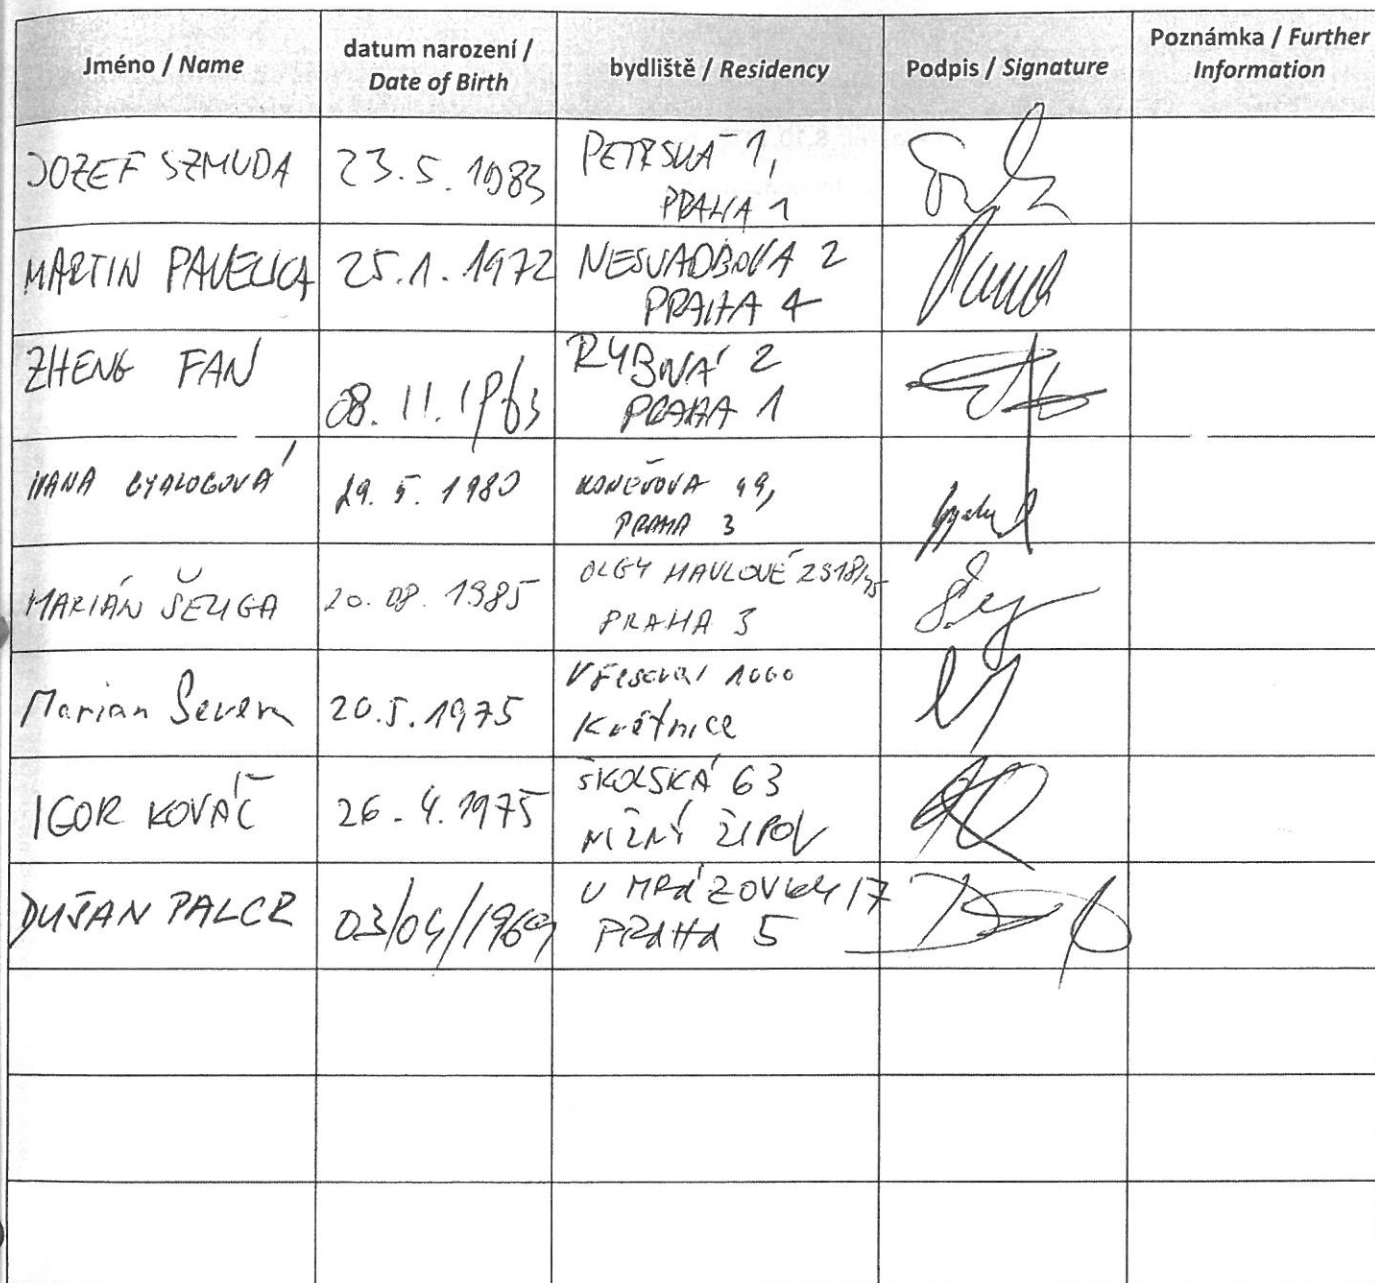 Jméno / Name
datum narození /
Date of Birth
bydliště / Residency
Podpis / Signature
Poznámka / Further
Information
JOZEF SZMUDA
23.5.1983
PETRSKÁ 1,
PRAHA 1
MARTIN PAVELICA
25.1.1972
NESVADBOVA 2
PRAHA 4
ZHENG FAN
08.11.1963
RYBNÁ 2
PRAHA 1
IVANA GYALOGOVÁ
29.5.1980
KONĚVOVA 49,
PRAHA 3
MARIÁN ŠELIGA
20.08.1985
OLGY HAVLOVÉ
PRAHA 3
Marian Severa
20.5.1975
1000
Květnice
IGOR KOVÁČ
26.4.1975
ŠKOLSKÁ 63
NIŽNÝ ŽIPOV
DUŠAN PALCR
03/04/1969
U MRÁZOVKY 17
PRAHA 5